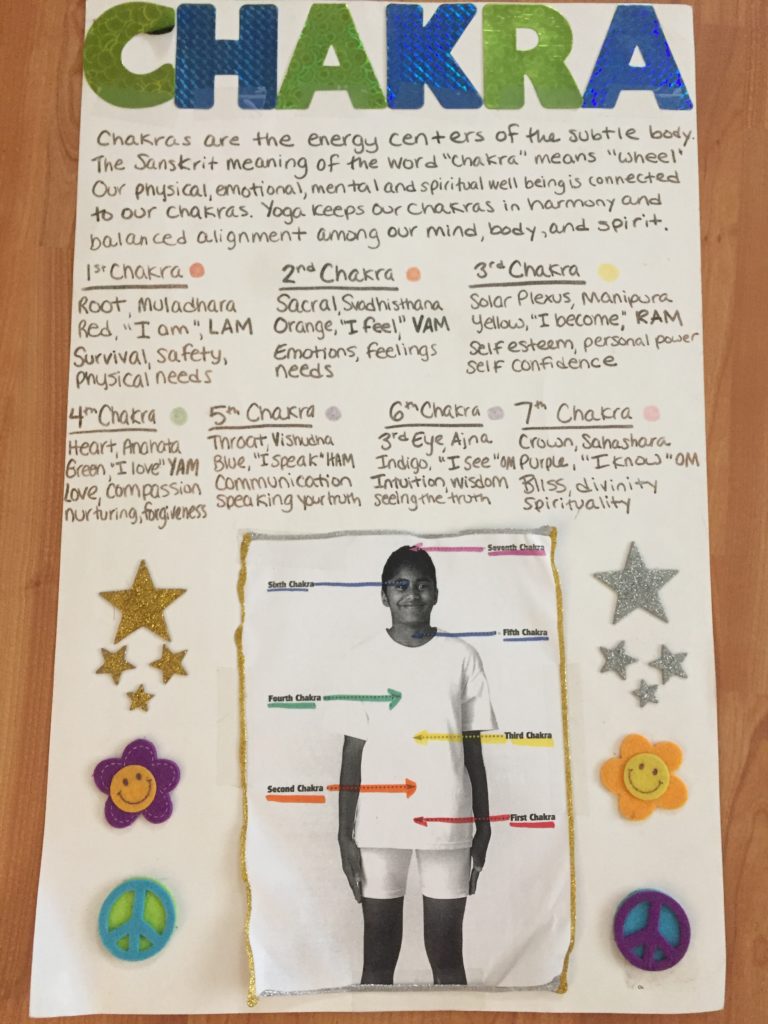 CHAKRA
Chakras are the energy centers of the subtle body.
The Sanskrit meaning of the word "Chakra" means "wheel"
Our physical, emotional, mental and spiritual well being is connected
to our chakras. Yoga keeps our chakras in harmony and
balanced alignment among our mind, body, and spirit.
1st Chakra
Root, Muladhara
Red, "I am", LAM
Survival, safety,
physical needs
2nd Chakra
Sacral, Svadhisthana
Orange, "I feel," VAM
Emotions, feelings
needs
3rd Chakra
Solar Plexus, Manipura
Yellow, "I become," RAM
Self esteem, personal power
self confidence
4th Chakra
Heart, Anahata
Green, "I love" YAM
Love, compassion
nurturing, forgiveness
5th Chakra
Throat, Vishudha
Blue, "I speak" HAM
Communication
speaking your truth
6th Chakra
3rd Eye, Ajna
Indigo, "I see" OM
Intuition, wisdom
seeing the truth
7th Chakra
Crown, Sahashara
Purple, "I know" OM
Bliss, divinity
spirituality
Seventh Chakra
Sixth Chakra
Fifth Chakra
Fourth Chakra
Third Chakra
Second Chakra
First Chakra